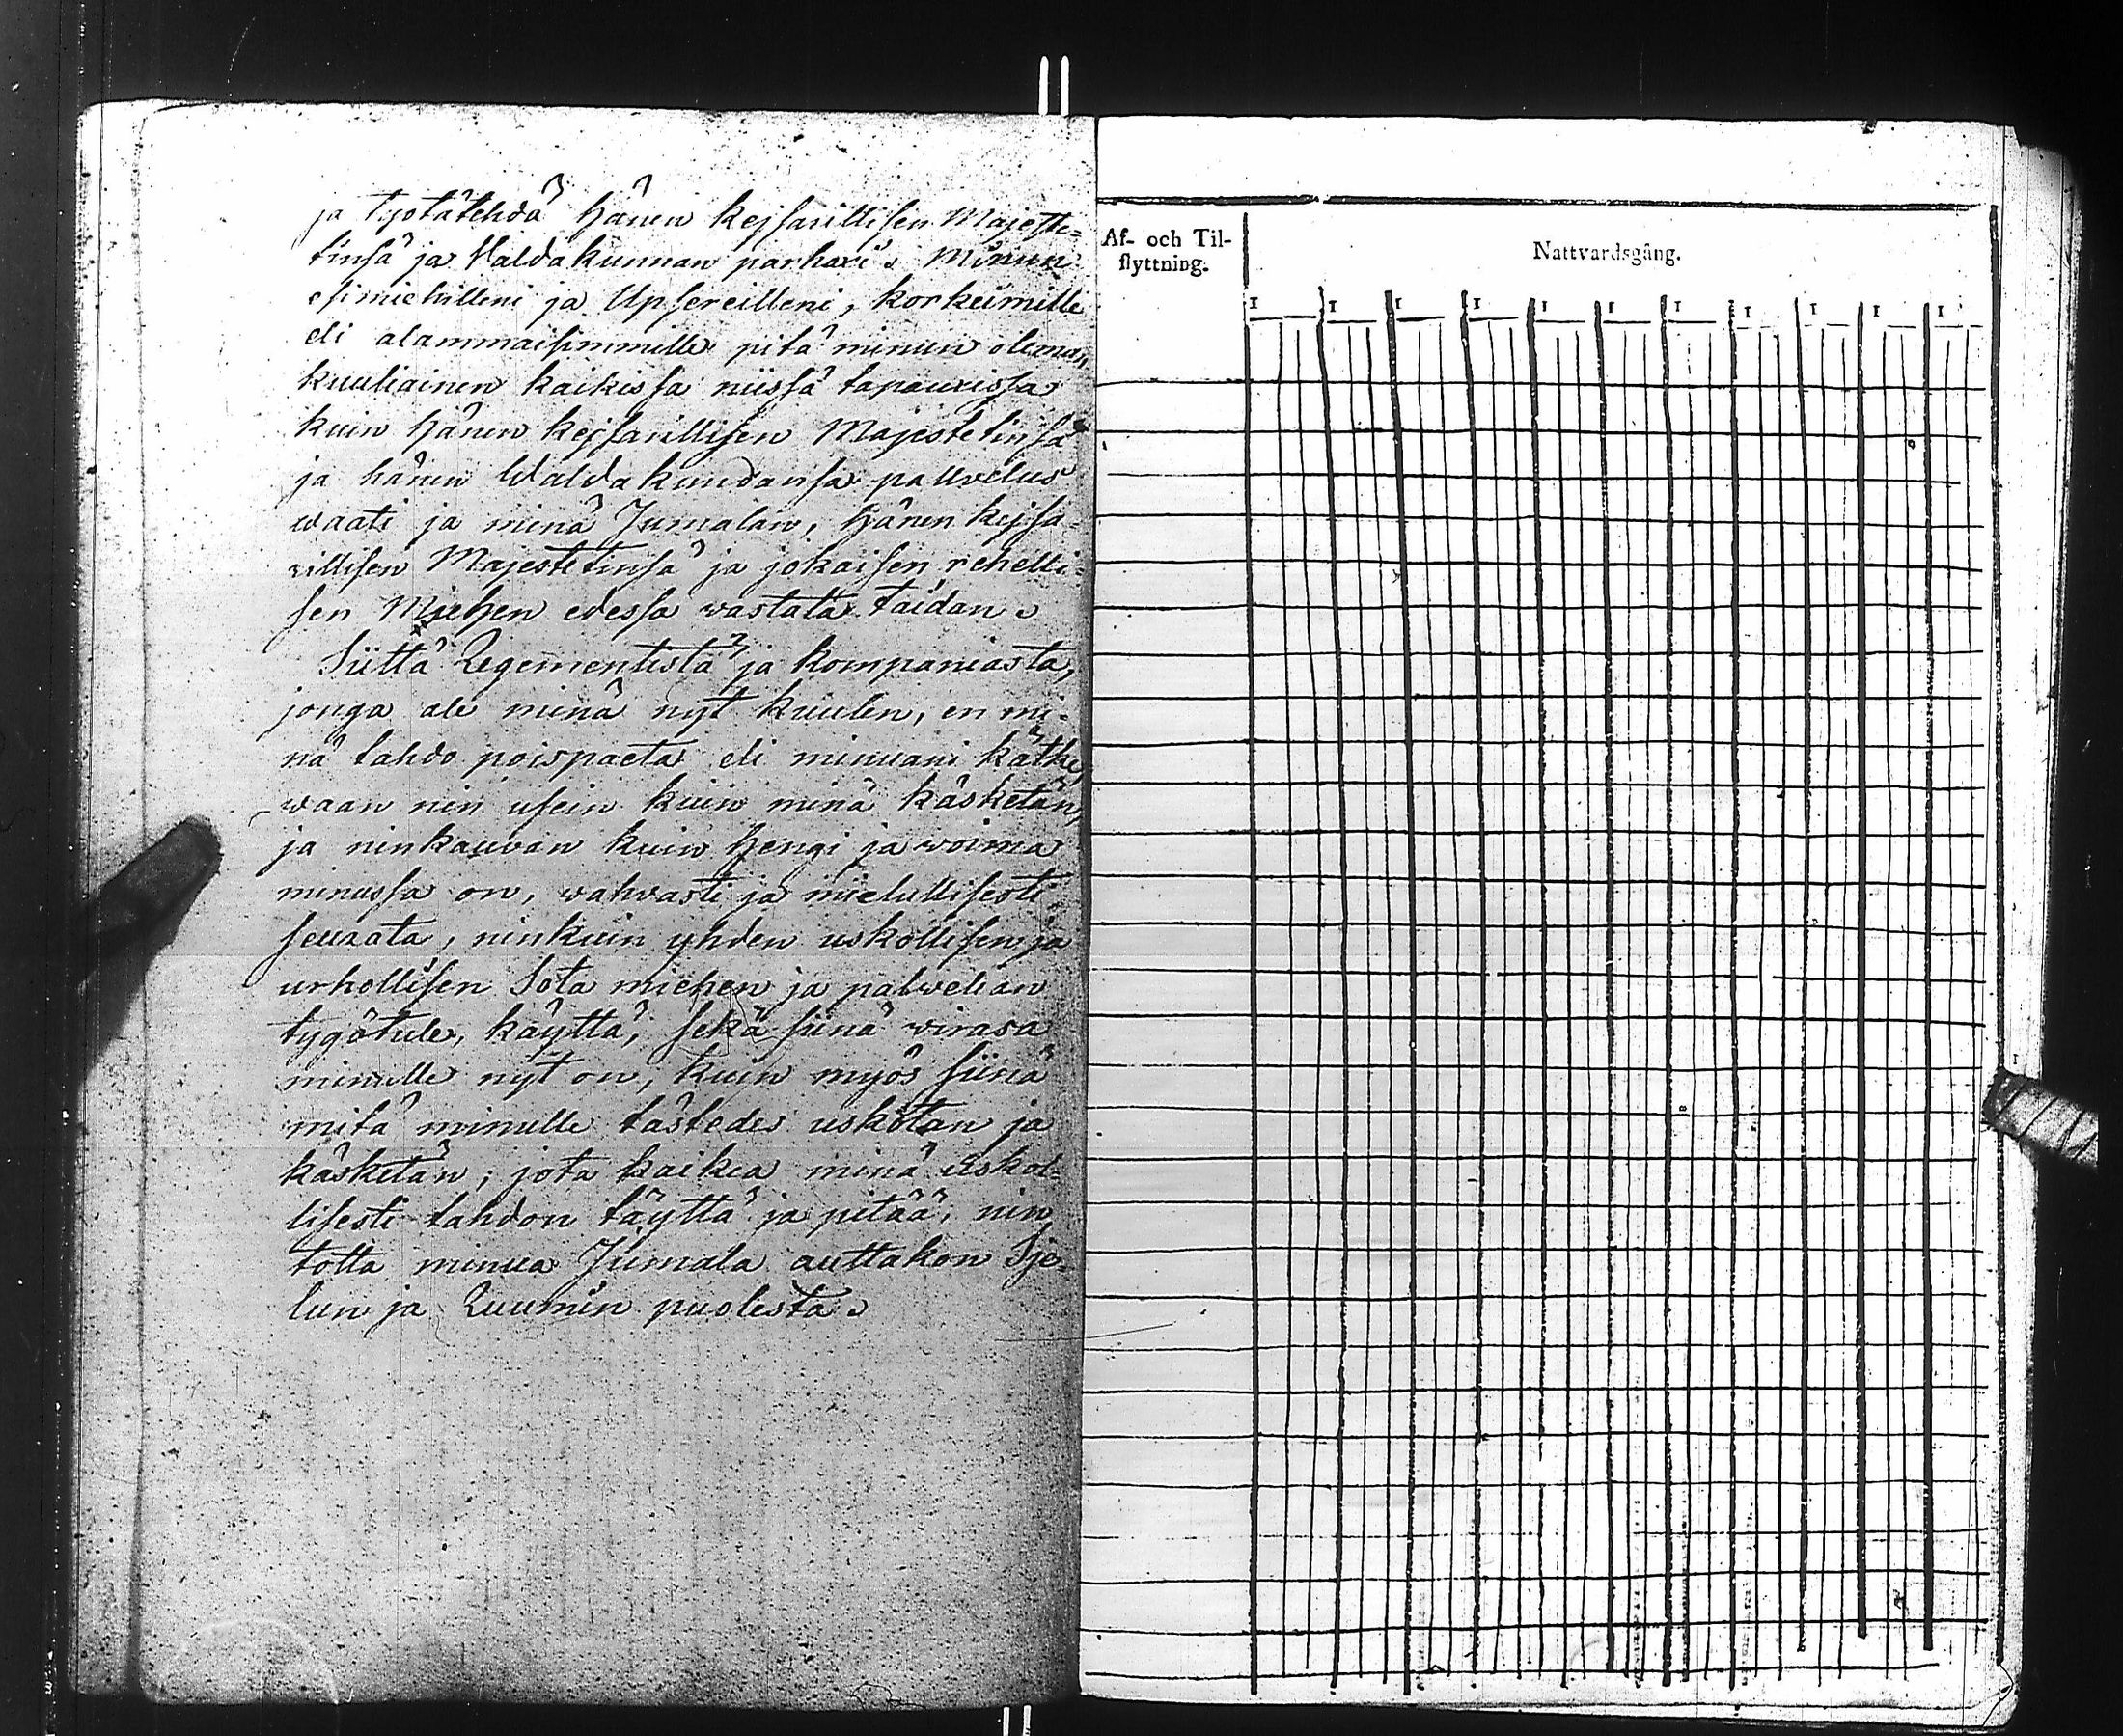 ja työtätehdä hänen kejsarillisen Majeste-
tinsä ja Valdakunnan parhaxi. Minun
esimiehilleni ja Upsereilleni, korkeimille
eli alammaisimmille pitä minun oleman
kuuliainen kaikissa niissä tapauxissa
kuin hänen kejsarillisen Majestetinsä
ja hänen Waldakundansa palvelus
waati ja minä Jumalan, hänen kejsa-
rillisen Majestetinsä ja jokaisen rehelli-
sen Miehen edessä vastata taidan.
Siittä Regementistä ja kompaniasta,
jonga ale minä nyt kuulen, en mi-
nä tahdo poispaeta eli minuani kätke,
waan nin usein kuin minä käsketän,
ja ninkauvan kuin hengi ja woima
minussa on, wahvasti ja mielullisesti
seurata, ninkuin yhden uskollisen ja
urhollisen Sota miehen ja palwelian
tygötule, käyttä, sekä siinä virasa
minulle nyt on, kuin myös siinä
mitä minulle tästedes uskotan ja
käsketän; jota kaikea minä uskol-
lisesti tahdon täyttä ja pitää, nin
totta minua Jumala auttakon Sje-
lun ja Ruumin puolesta.
Af- och Til-
flyttning.
Nattvardsgång.
1 1 1 1 1 1 1 1 1 1 1